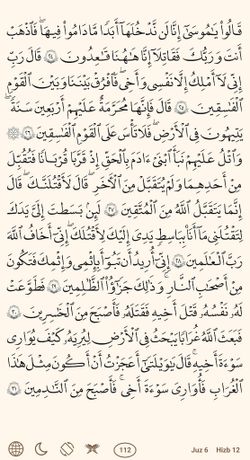 قَالُوا۟ يَـٰمُوسَىٰٓ إِنَّا لَن نَّدْخُلَهَآ أَبَدًا مَّا دَامُوا۟ فِيهَا ۖ فَٱذْهَبْ
أَنتَ وَرَبُّكَ فَقَـٰتِلَآ إِنَّا هَـٰهُنَا قَـٰعِدُونَ ٢٤ قَالَ رَبِّ
إِنِّى لَآ أَمْلِكُ إِلَّا نَفْسِى وَأَخِى ۖ فَٱفْرُقْ بَيْنَنَا وَبَيْنَ ٱلْقَوْمِ
ٱلْفَـٰسِقِينَ ٢٥ قَالَ فَإِنَّهَا مُحَرَّمَةٌ عَلَيْهِمْ ۛ أَرْبَعِينَ سَنَةً ۛ
يَتِيهُونَ فِى ٱلْأَرْضِ ۚ فَلَا تَأْسَ عَلَى ٱلْقَوْمِ ٱلْفَـٰسِقِينَ ٢٦ ۞
وَٱتْلُ عَلَيْهِمْ نَبَأَ ٱبْنَىْ ءَادَمَ بِٱلْحَقِّ إِذْ قَرَّبَا قُرْبَانًا فَتُقُبِّلَ
مِنْ أَحَدِهِمَا وَلَمْ يُتَقَبَّلْ مِنَ ٱلْـَٔاخَرِ قَالَ لَأَقْتُلَنَّكَ ۖ قَالَ
إِنَّمَا يَتَقَبَّلُ ٱللَّهُ مِنَ ٱلْمُتَّقِينَ ٢٧ لَئِنۢ بَسَطتَ إِلَىَّ يَدَكَ
لِتَقْتُلَنِى مَآ أَنَا۠ بِبَاسِطٍ يَدِىَ إِلَيْكَ لِأَقْتُلَكَ ۖ إِنِّىٓ أَخَافُ ٱللَّهَ
رَبَّ ٱلْعَـٰلَمِينَ ٢٨ إِنِّىٓ أُرِيدُ أَن تَبُوٓأَ بِإِثْمِى وَإِثْمِكَ فَتَكُونَ
مِنْ أَصْحَـٰبِ ٱلنَّارِ ۚ وَذَٰلِكَ جَزَٰٓؤُا۟ ٱلظَّـٰلِمِينَ ٢٩ فَطَوَّعَتْ
لَهُۥ نَفْسُهُۥ قَتْلَ أَخِيهِ فَقَتَلَهُۥ فَأَصْبَحَ مِنَ ٱلْخَـٰسِرِينَ ٣٠
فَبَعَثَ ٱللَّهُ غُرَابًا يَبْحَثُ فِى ٱلْأَرْضِ لِيُرِيَهُۥ كَيْفَ يُوَٰرِى
سَوْءَةَ أَخِيهِ ۚ قَالَ يَـٰوَيْلَتَىٰٓ أَعَجَزْتُ أَنْ أَكُونَ مِثْلَ هَـٰذَا
ٱلْغُرَابِ فَأُوَٰرِىَ سَوْءَةَ أَخِى ۖ فَأَصْبَحَ مِنَ ٱلنَّـٰدِمِينَ ٣١
112 Juz 6 Hizb 12